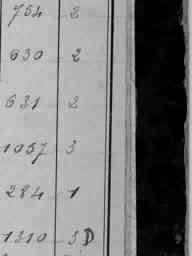 754 2
630 2
631 2
1057 3
284 1
1310 3 D